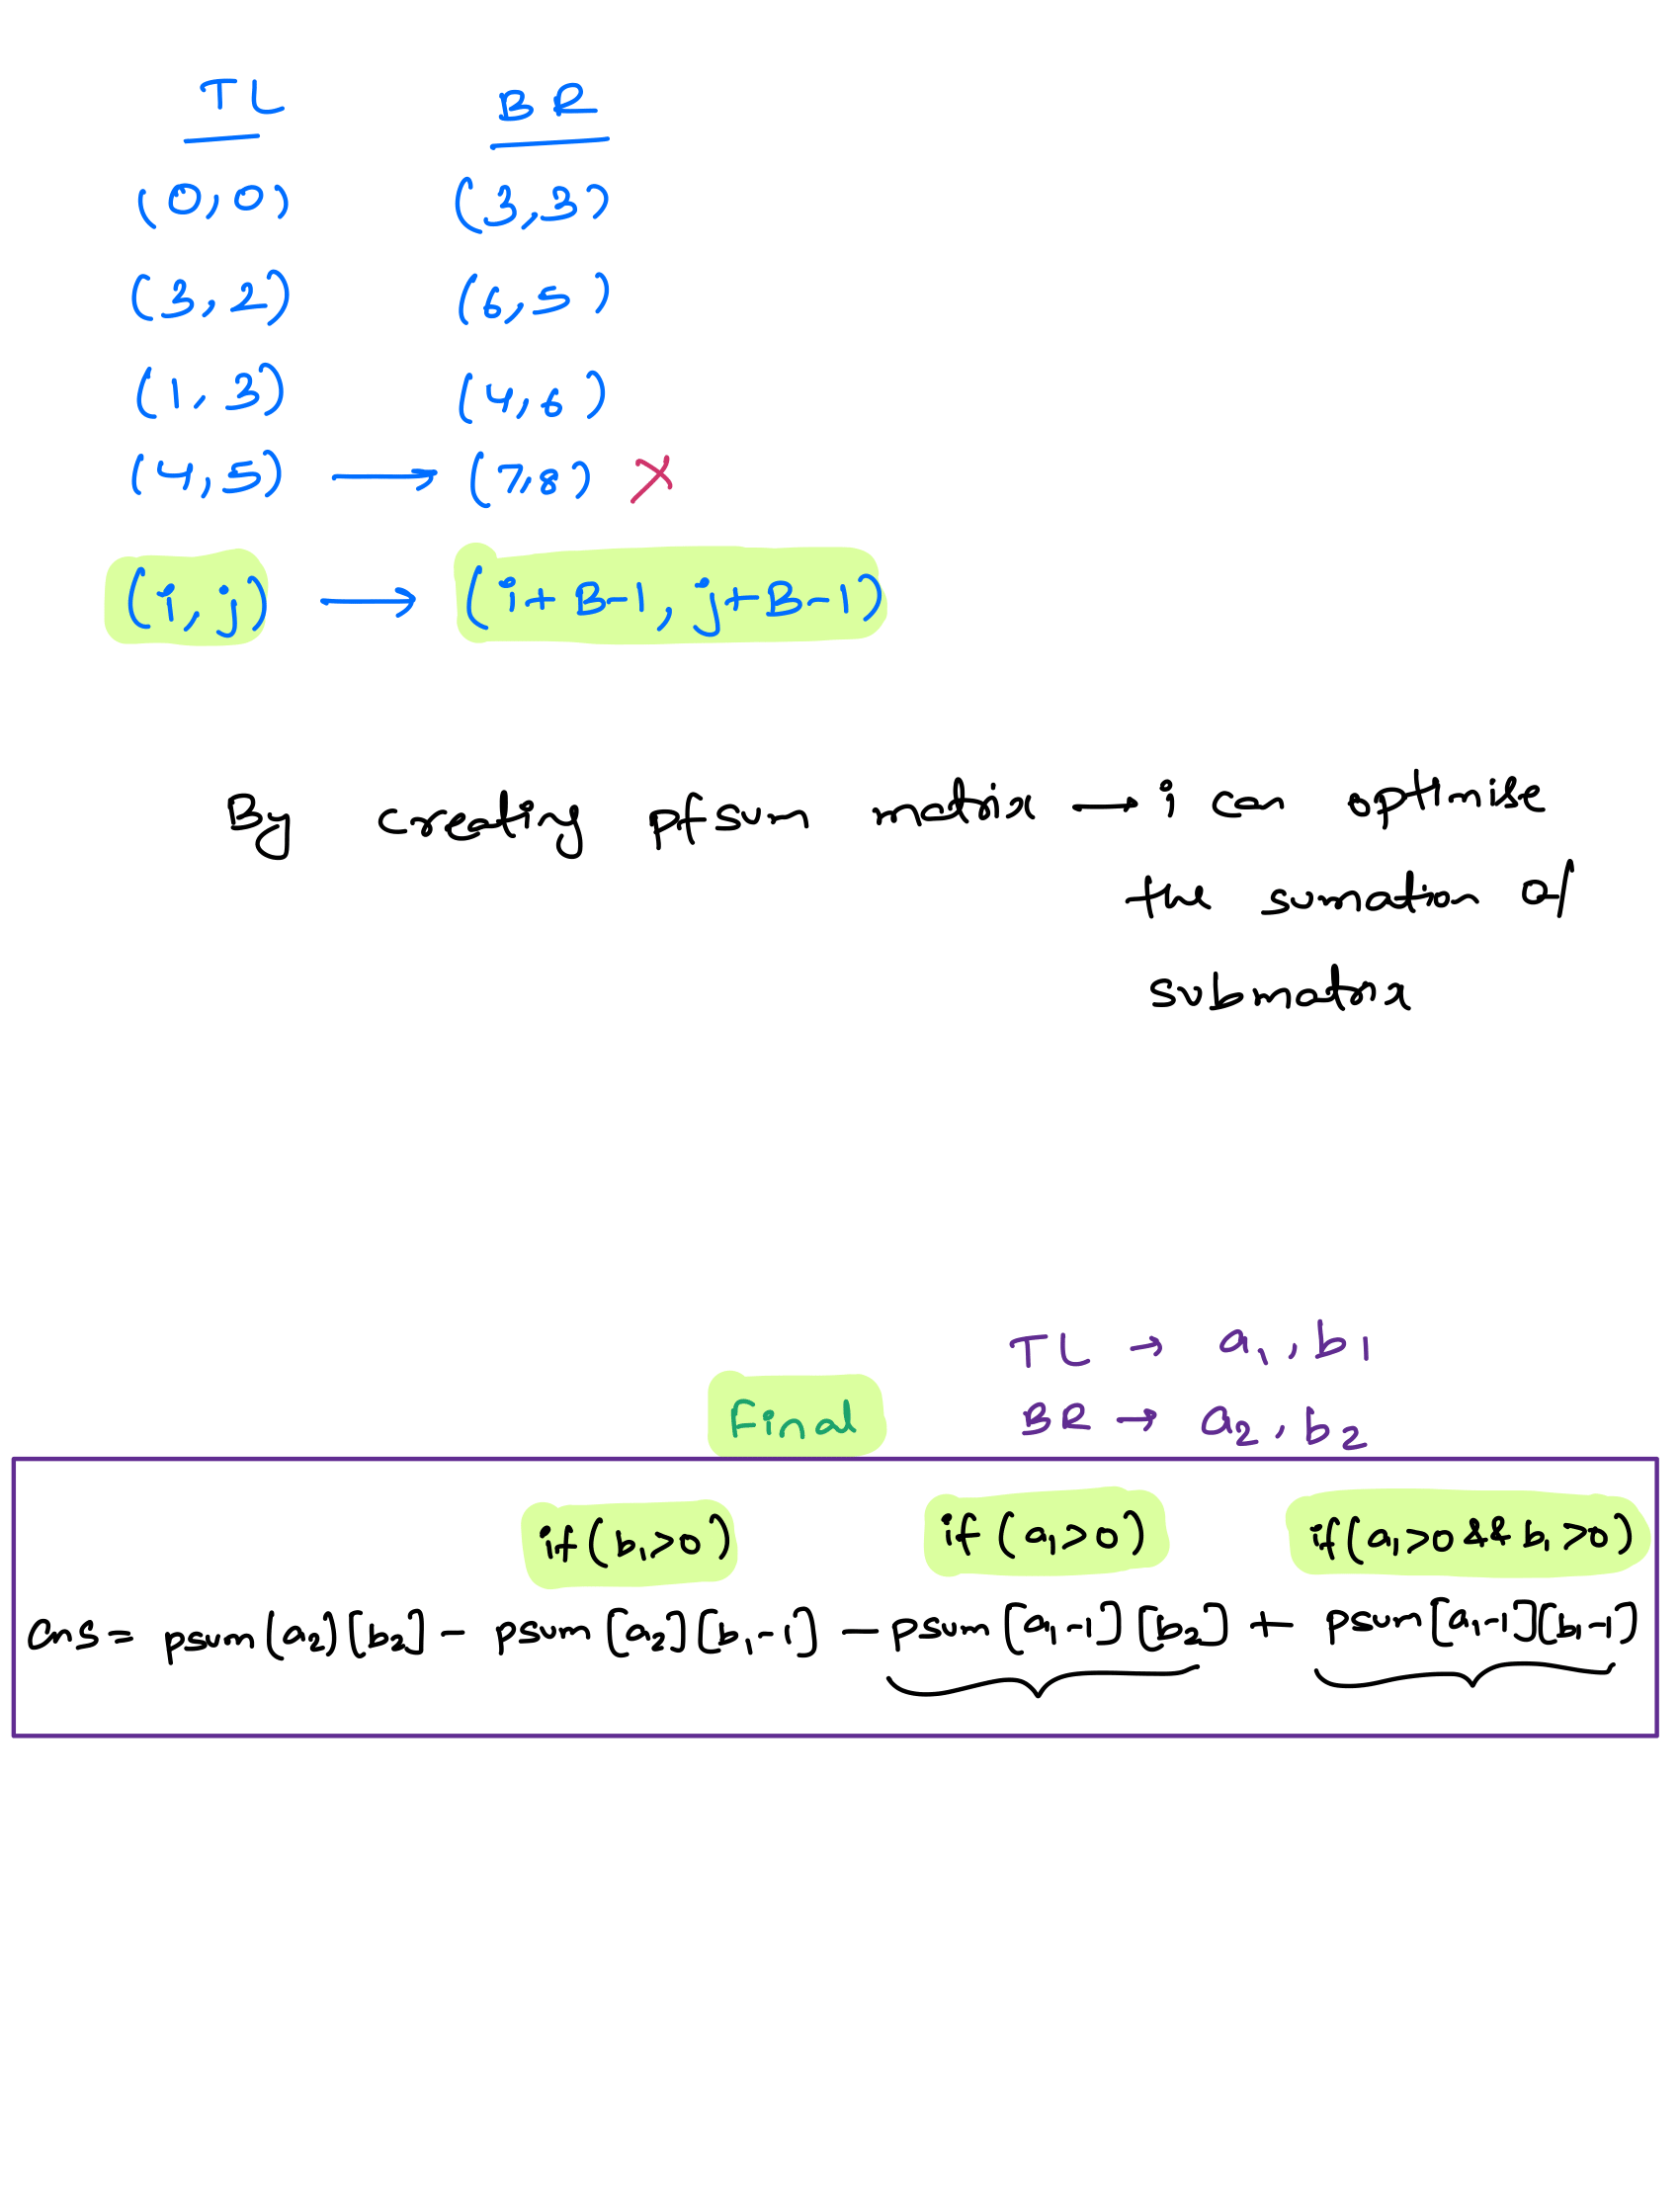 TL BR
(0,0) (3,3)
(3,2) (6,5)
(1,3) (4,6)
(4,5) → (7,8) X
(i,j) → (i+B-1, j+B-1)
By creating pfsum matrix → i can optimise
the sumation of
submatrix
TL → a1, b1
Final BR → a2, b2
if(b1>0) if(a1>0) if(a1>0 && b1>0)
ans = psum[a2][b2] - psum[a2][b1-1] - psum[a1-1][b2] + psum[a1-1][b1-1]